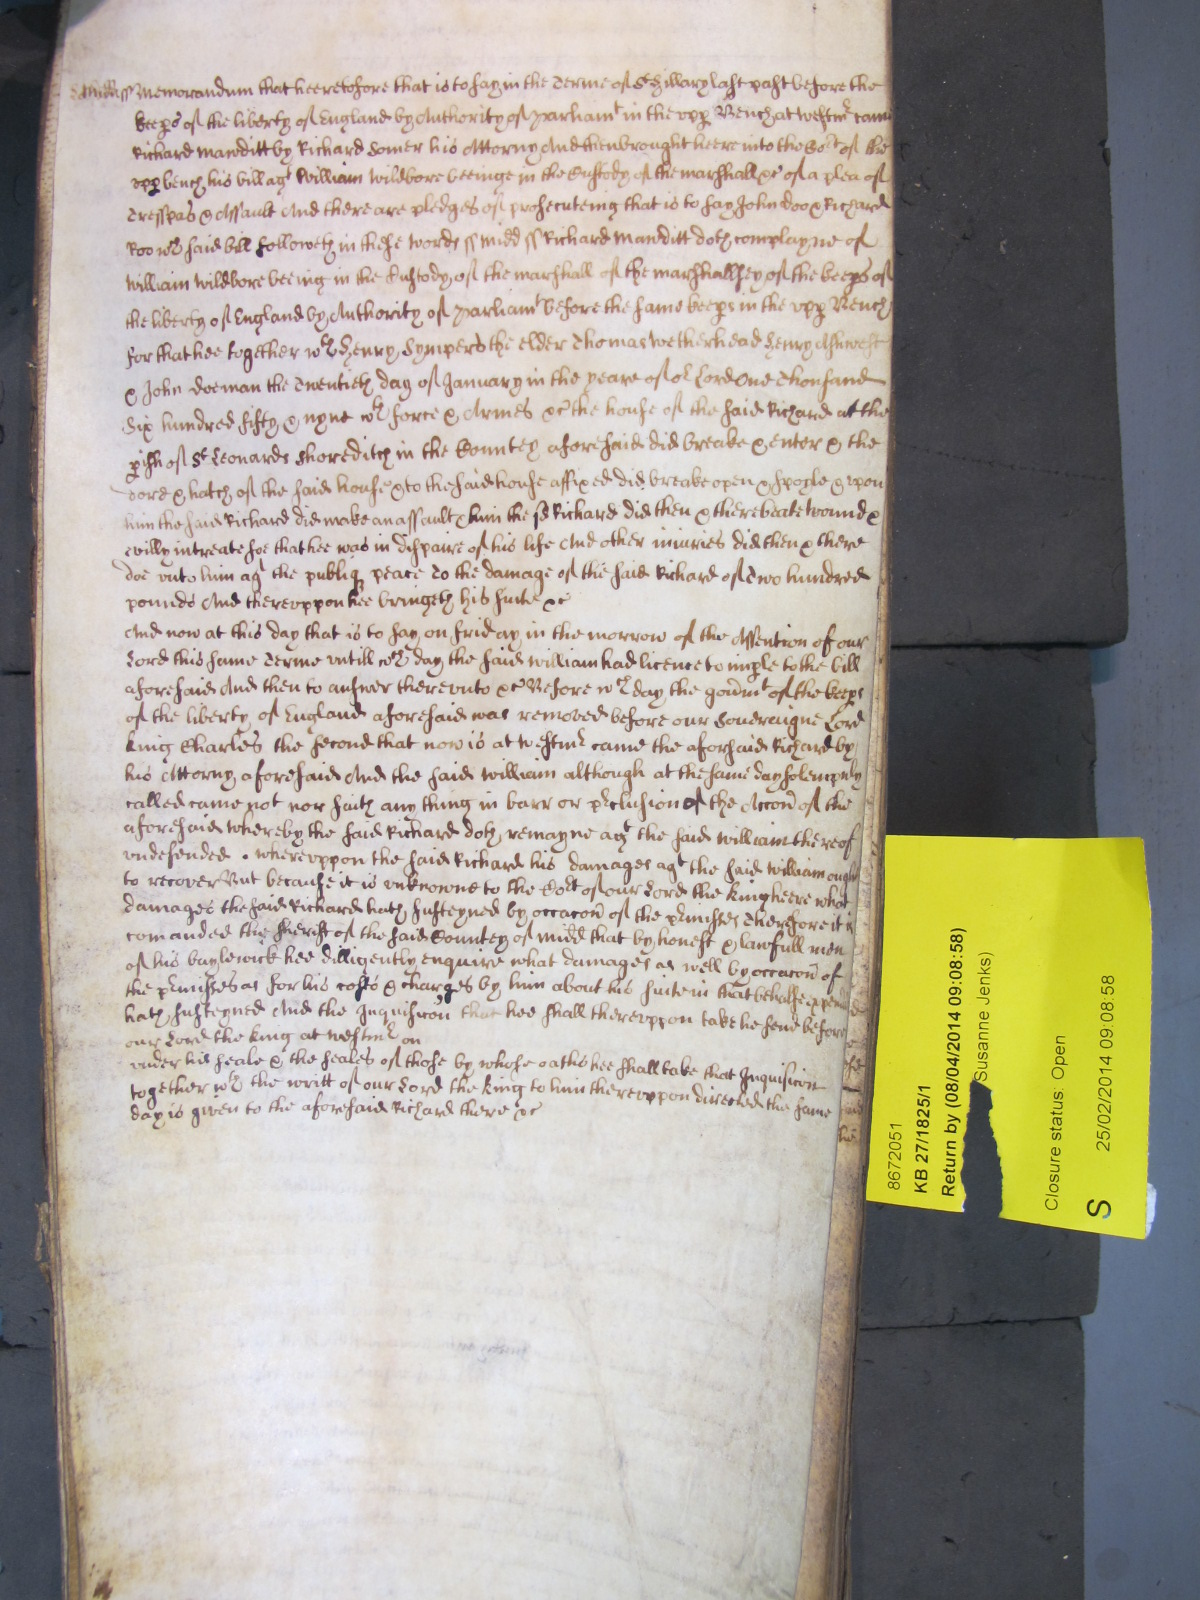 Midd ss Memorandum that heeretofore that is to say in the Terme of St Hillary last past before the
keeps of the liberty of England by Authority of Parliamt in the vpp Bench at Westmr came
Richard Mawditt by Richard Somer his Attorny And then brought heere into the Cort of the
vpp bench his bill agt William Wildbore beeinge in the Custody of the marshall &c of a plea of
Tresspas & Assault And there are pledges of prosecuteing that is to say John Doo & Richard
Roo wch said bill followeth in these words ss Midd ss Richard Mawditt doth complayne of
William Wildbore beeing in the Custody of the marshall of the marshallsey of the keeps of
the liberty of England by Authority of Parliamt before the same keeps in the vpp Bench
For that hee together wth Henry Sympers the elder Thomas Wetherhead Henry Ashwest
& John Doeman the Twentieth day of January in the yeare of or Lord One Thousand
Six hundred fifty & nyne wth force & Armes &c the house of the said Richard at the
pish of St Leonards Shoreditch in the Countey aforesaid did breake & enter & the
dore & hatch of the said house & to the said house affixed did breake open & spoyle & vpon
him the said Richard did make an assault & him the sd Richard did then & there beate wound &
evilly intreate soe that hee was in dispaire of his life And other iniuries did then & there
doe vnto him agt the publiq peace To the damage of the said Richard of Two hundred
pounds And therevppon hee bringeth his suite &c
And now at this day that is to say on Friday in the morrow of the Assention of our
Lord this same Terme vntill wch day the said William had licence to imple to the bill
aforesaid And then to answer therevnto &c Before wch day the govmt of the keeps
of the liberty of England aforesaid was removed before our Soueraigne Lord
King Charles the second that now is at Westmr came the aforsaid Richard by
his Attorny aforesaid And the said William although at the same day solempnly
called came not nor saith any thing in barr or pclusion of the Accon of the
aforesaid whereby the said Richard doth remayne agt the said William thereof
vndefended . wherevppon the said Richard his damages agt the said William ought
to recover But because it is vnknowne to the Cort of our Lord the King heere what
damages the said Richard hath susteyned by occacon of the pmisses Therefore it is
comanded the sheriff of the said Countey of Midd that by honest & lawfull men
of his baylewick hee dilligently enquire what damages as well by occacon of
the pmisses as for his costs & charges by him about his suite in that behalfe expended
hath susteyned And the Inquisicon that hee shall therevppon take he send before
our Lord the King at Westmr on
vnder his seale & the seales of those by whose oathes hee shall take that Inquisicon
together wth the writt of our Lord the King to him therevppon directed the same
day is given to the aforesaid Richard there &c
8672051
KB 27/1825/1
Return by (08/04/2014 09:08:58)
Susanne Jenks)
Closure status: Open
S
25/02/2014 09:08:58